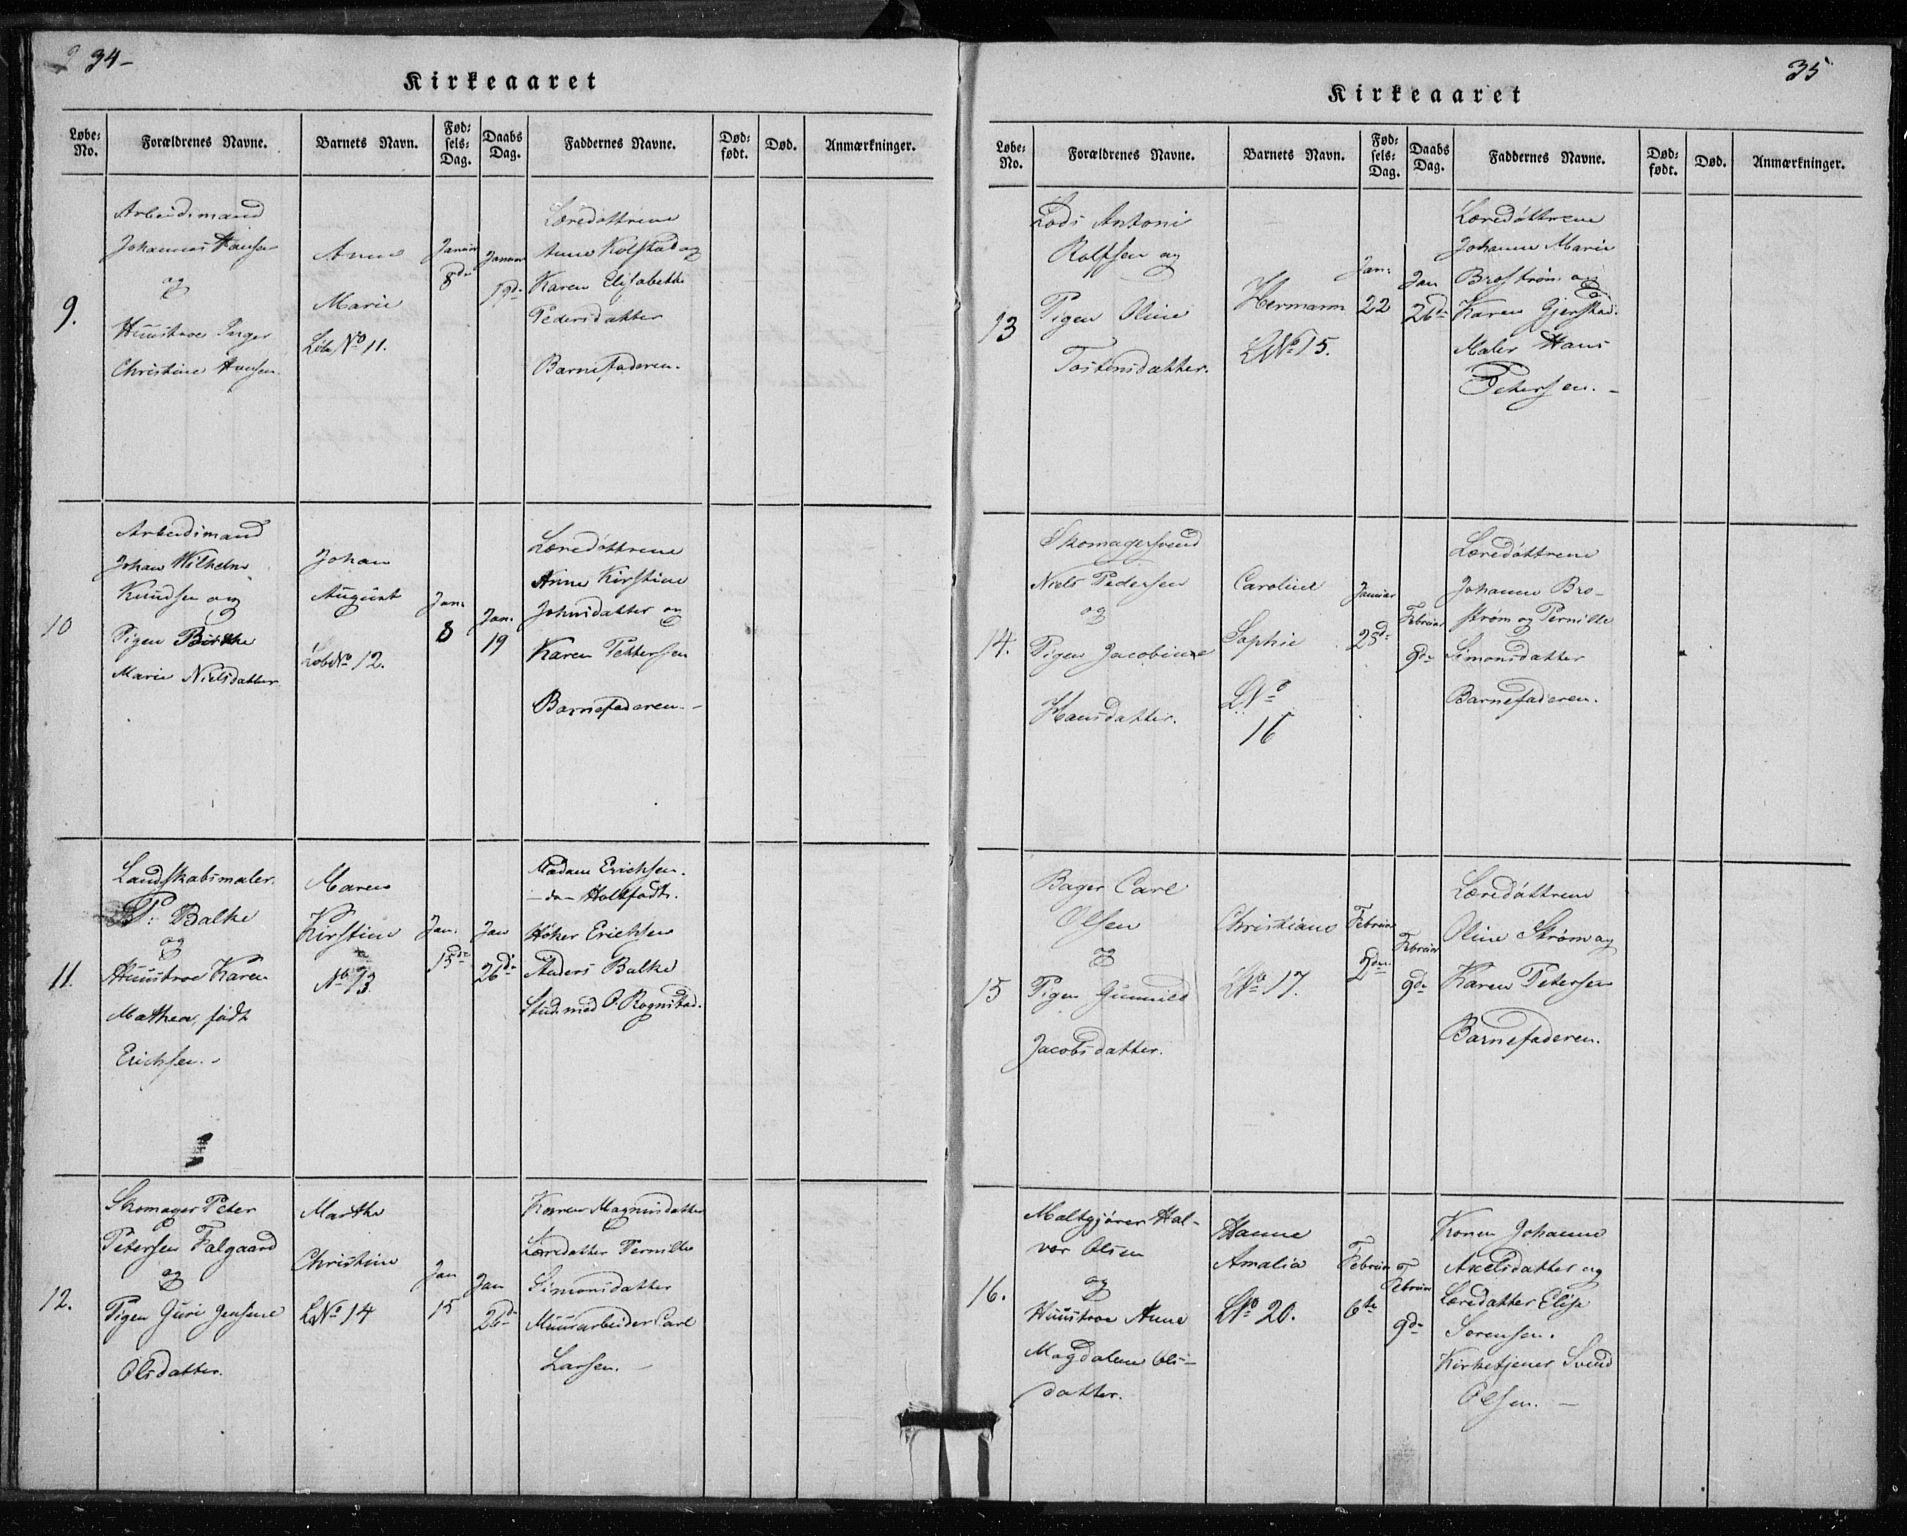 34-
Kirkeaaret
Løbe-No. Forældrenes Navne. Barnets Navn. Fødsels-Dag. Daabs Dag. Faddernes Navne. Dødfødt. Død. Anmærkninger.
9.
Arbeidsmand
Johannes Hansen
og
Huustroe Inger
Christine Hansen.
Anne
Marie
Løb No 11.
Januar
8de
Januar
19de
Læredøttrene
Anne Kolstad og
Karen Elisabeth
Pedersdatter
Barnefaderen.
10
Arbeidsmand
Johan Wilhelm
Knudsen og
Pigen Birthe
Marie Nielsdatter
Johan
August
Løb No 12.
Jan.
8
Jan.
19
Læredøttrene
Anne Kirstine
Johnsdatter og
Karen Pettersen
Barnefaderen.-
11.
Landskabsmaler
P: Balke
og
Huustroe Karen
Mathea, født
Erichsen.-
Maren
Kirstine
No 13
Jan.
15de
Jan
26de
Madam Erichsen.
-do- Holtfodt.
Høker Erichsen
Anders Balke
Stud. med O Rognstad.
12.
Skomager Peter
Petersen Falgaard
og
Pigen Guri Jensine
Olsdatter.
Marthe
Christine
LNo 14
Jan
15
Jan
26de
Karen Magnusdatter
Læredatter Pernille
Simonsdatter
Muurarbeider Carl
Larsen.-
35
Kirkeaaret
Løbe-No. Forældrenes Navne. Barnets Navn. Fødsels-Dag. Daabs Dag. Faddernes Navne. Dødfødt. Død. Anmærkninger.
13
Lods Antoni
Rolfsen og
Pigen Oline
Tostensdatter.
Hermann
LNo 15.
Jan:
22
Jan
26de
Læredøttrene
Johanne Marie
Brostrøm og
Karen Gjerstad.
Maler Hans
Petersen.-
14.
Skomagersvend
Niels Pedersen
og
Pigen Jacobine
Hansdatter.
Caroline
Sophie
LNo
16
Januar
25de
Februar
9de
Læredøttrene
Johanne Bro-
strøm og Pernille
Simonsdatter
Barnefaderen.
15
Bager Carl
Olsen
og
Pigen Gunnild
Jacobsdatter.
Christiane
LNo 17.
Februar
2den
Februar
9de
Læredøttrene
Oline Strøm og
Karen Petersen
Barnefaderen.
16.
Maltgjører Hal-
vor Olsen
og
Huustroe Anne
Magdalene Ols-
datter.
Hanne
Amalia
LNo 20.
Februar
6te
Februar
9de
Konen Johanne
Axelsdatter og
Læredatter Elise
Sørensen.
Kirketjener Svend
Olsen.-